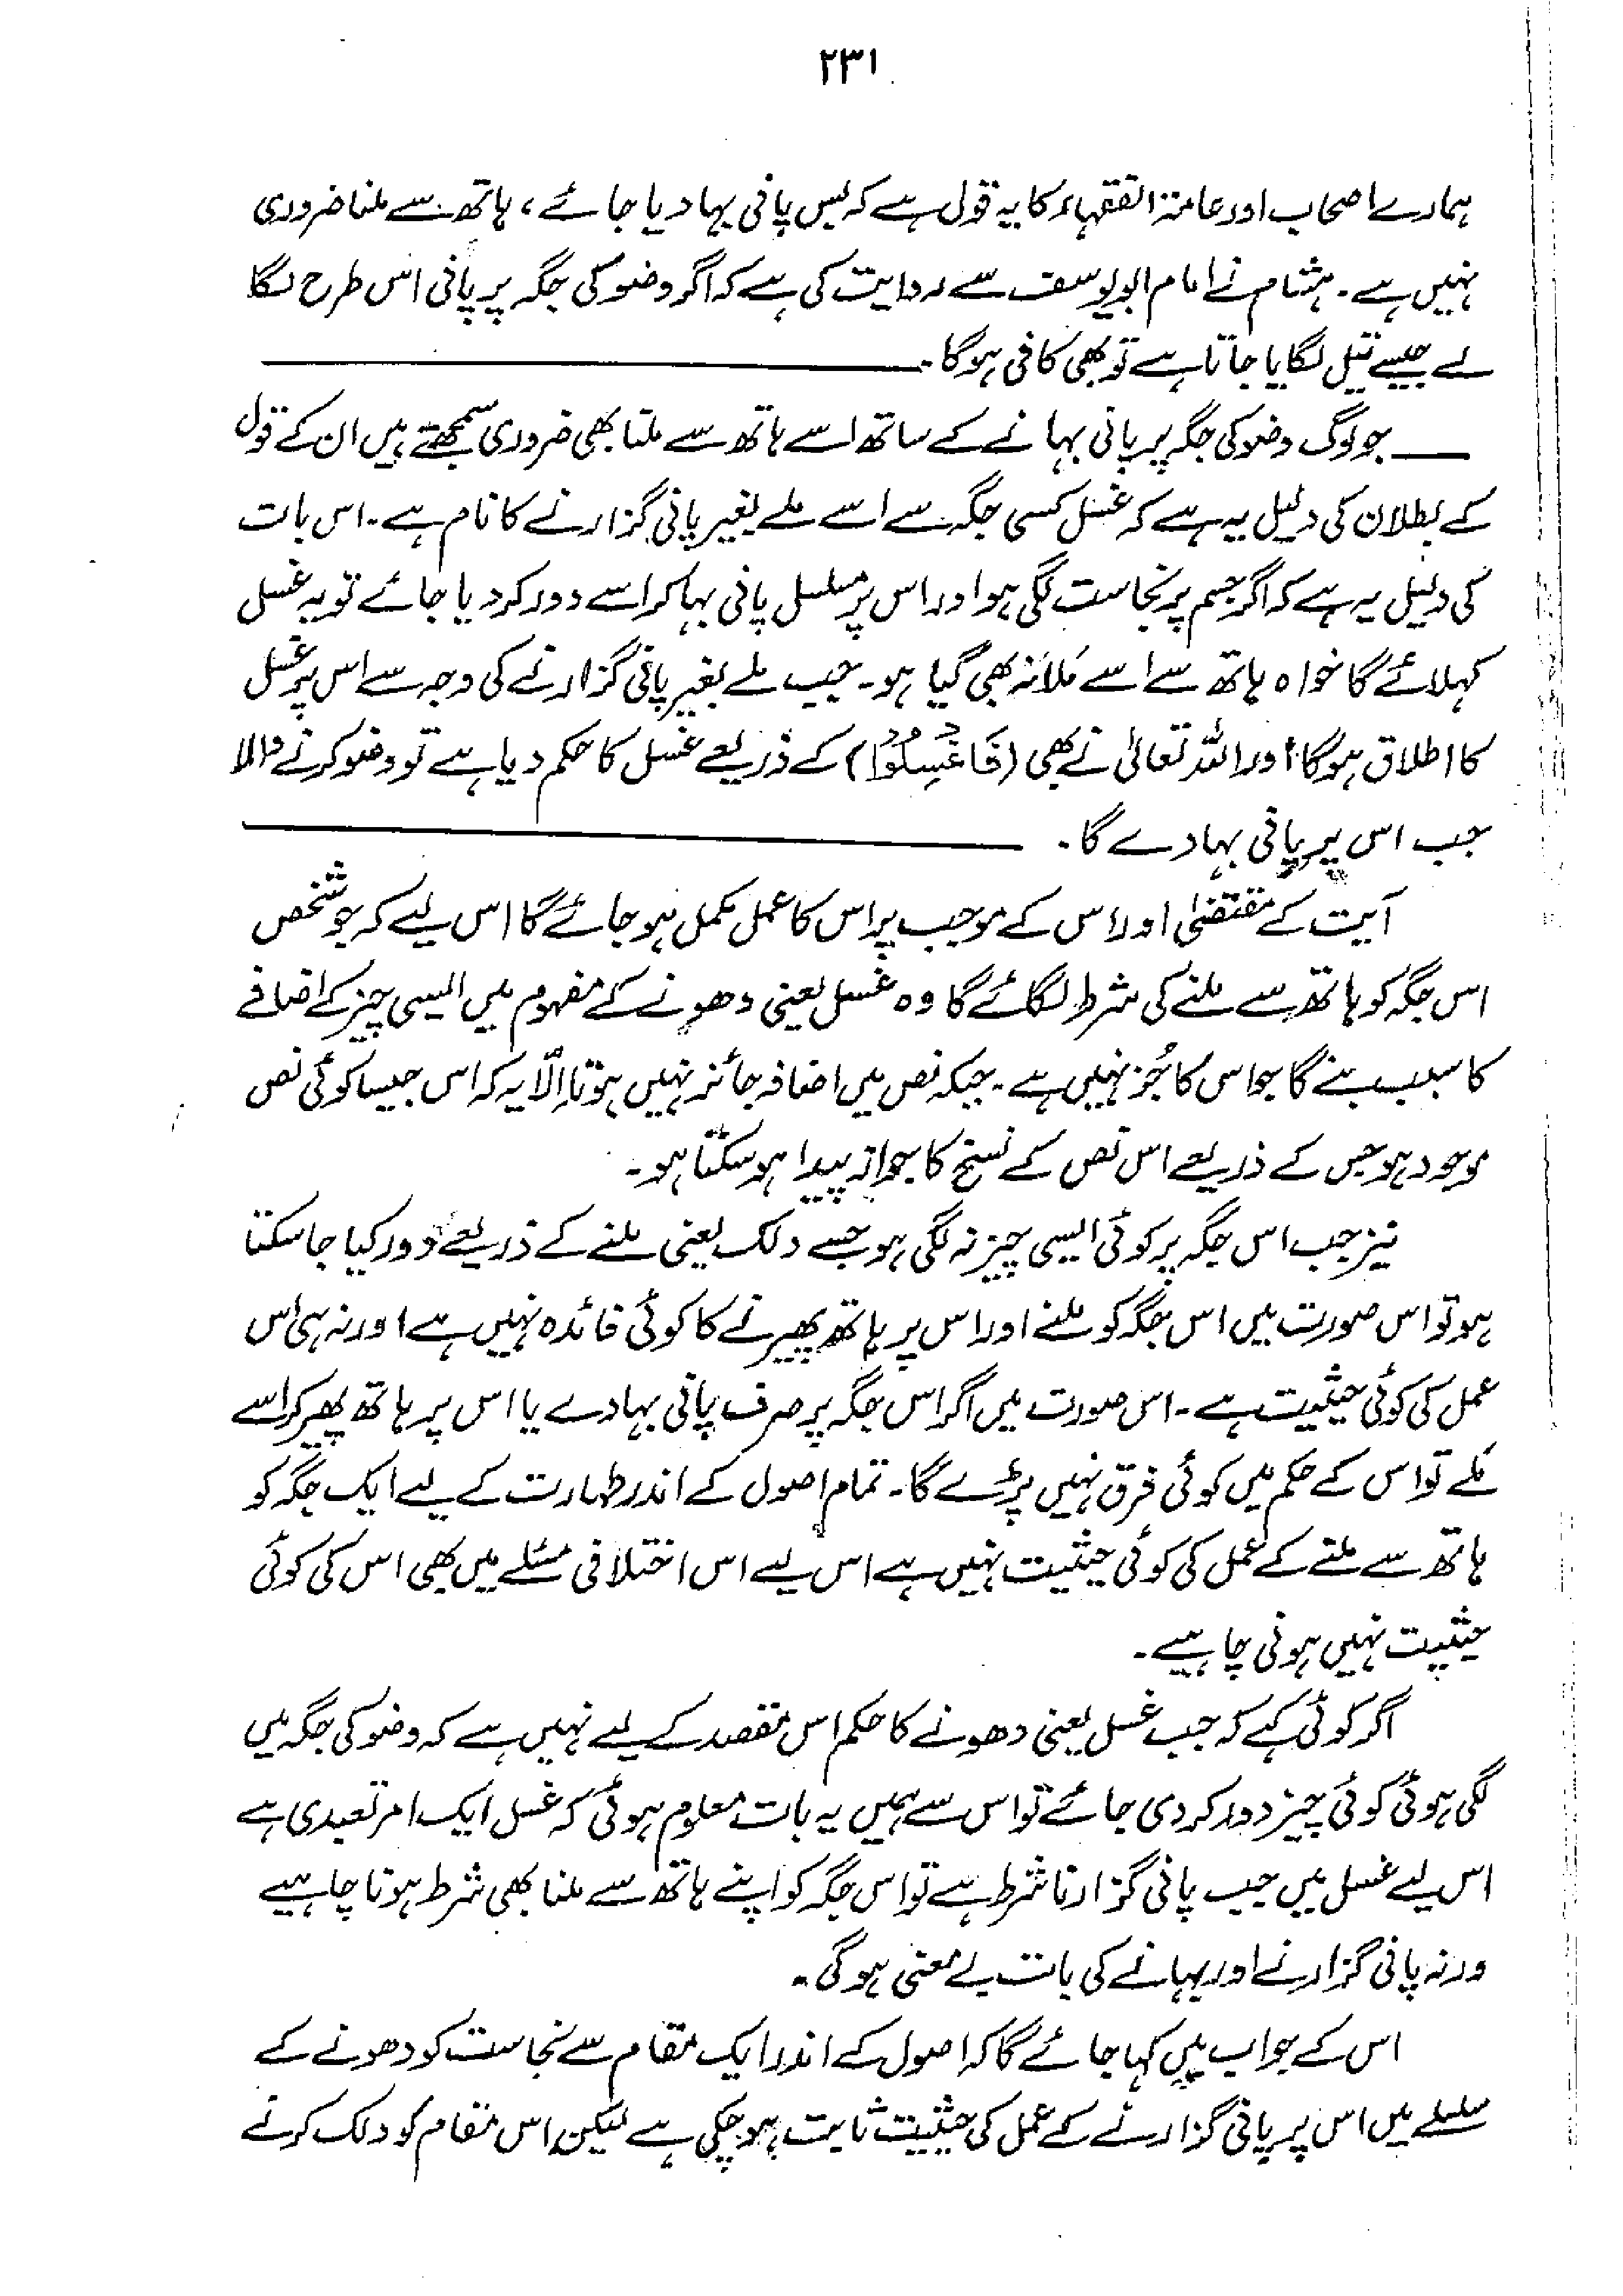 ۲۳۱
ہمارے اصحاب اور عامۃ الفقہاء کا یہ قول ہے کہ بس پانی بہا دیا جائے، ہاتھ سے ملنا ضروری
نہیں ہے۔ ہشام نے امام ابویوسف سے روایت کی ہے کہ اگر وضو کی جگہ پر پانی اس طرح لگا
لے جیسے تیل لگایا جاتا ہے تو بھی کافی ہوگا۔
جو لوگ وضو کی جگہ پر پانی بہانے کے ساتھ اسے ہاتھ سے ملنا بھی ضروری سمجھتے ہیں ان کے قول
کے بطلان کی دلیل یہ ہے کہ غسل کسی جگہ سے اسے ملے بغیر پانی گزارنے کا نام ہے۔ اس بات
کی دلیل یہ ہے کہ اگر جسم پر نجاست لگی ہو اور اس پر مسلسل پانی بہا کر اسے دور کر دیا جائے تو یہ غسل
کہلائے گا خواہ ہاتھ سے اسے مَلا نہ بھی گیا ہو۔ جب ملے بغیر پانی گزارنے کی وجہ سے اس پر غسل
کا اطلاق ہوگا اور اللہ تعالیٰ نے بھی (فَاغْسِلُوْا) کے ذریعے غسل کا حکم دیا ہے تو وضو کرنے والا
جب اس پر پانی بہا دے گا۔
آیت کے مقتضیٰ اور اس کے موجب پر اس کا عمل مکمل ہو جائے گا اس لیے کہ جو شخص
اس جگہ کو ہاتھ سے ملنے کی شرط لگائے گا وہ غسل یعنی دھونے کے مفہوم میں ایسی چیز کے اضافے
کا سبب بنے گا جو اس کا جُز نہیں ہے۔ جبکہ نص میں اضافہ جائز نہیں ہوتا اِلّا یہ کہ اس جیسا کوئی نص
موجود ہو جس کے ذریعے اس نص کے نسخ کا جواز پیدا ہو سکتا ہو۔
نیز جب اس جگہ پر کوئی ایسی چیز نہ لگی ہو جسے دلک یعنی ملنے کے ذریعے دور کیا جا سکتا
ہو تو اس صورت میں اس جگہ کو ملنے اور اس پر ہاتھ پھیرنے کا کوئی فائدہ نہیں ہے اور نہ ہی اس
عمل کی کوئی حیثیت ہے۔ اس صورت میں اگر اس جگہ پر صرف پانی بہا دے یا اس پر ہاتھ پھیر کر اسے
مَلے تو اس کے حکم میں کوئی فرق نہیں پڑے گا۔ تمام اصول کے اندر طہارت کے لیے ایک جگہ کو
ہاتھ سے ملنے کے عمل کی کوئی حیثیت نہیں ہے اس لیے اس اختلافی مسئلے میں بھی اس کی کوئی
حیثیت نہیں ہونی چاہیے۔
اگر کوئی کہے کہ جب غسل یعنی دھونے کا حکم اس مقصد کے لیے نہیں ہے کہ وضو کی جگہ میں
لگی ہوئی کوئی چیز دور کر دی جائے تو اس سے ہمیں یہ بات معلوم ہوئی کہ غسل ایک امر تعبدی ہے
اس لیے غسل میں جب پانی گزارنا شرط ہے تو اس جگہ کو اپنے ہاتھ سے ملنا بھی شرط ہونا چاہیے
ورنہ پانی گزارنے اور بہانے کی بات بے معنی ہوگی۔
اس کے جواب میں کہا جائے گا کہ اصول کے اندر ایک مقام سے نجاست کو دھونے کے
سلسلے میں اس پر پانی گزارنے کے عمل کی حیثیت ثابت ہو چکی ہے لیکن اس مقام کو دلک کرنے